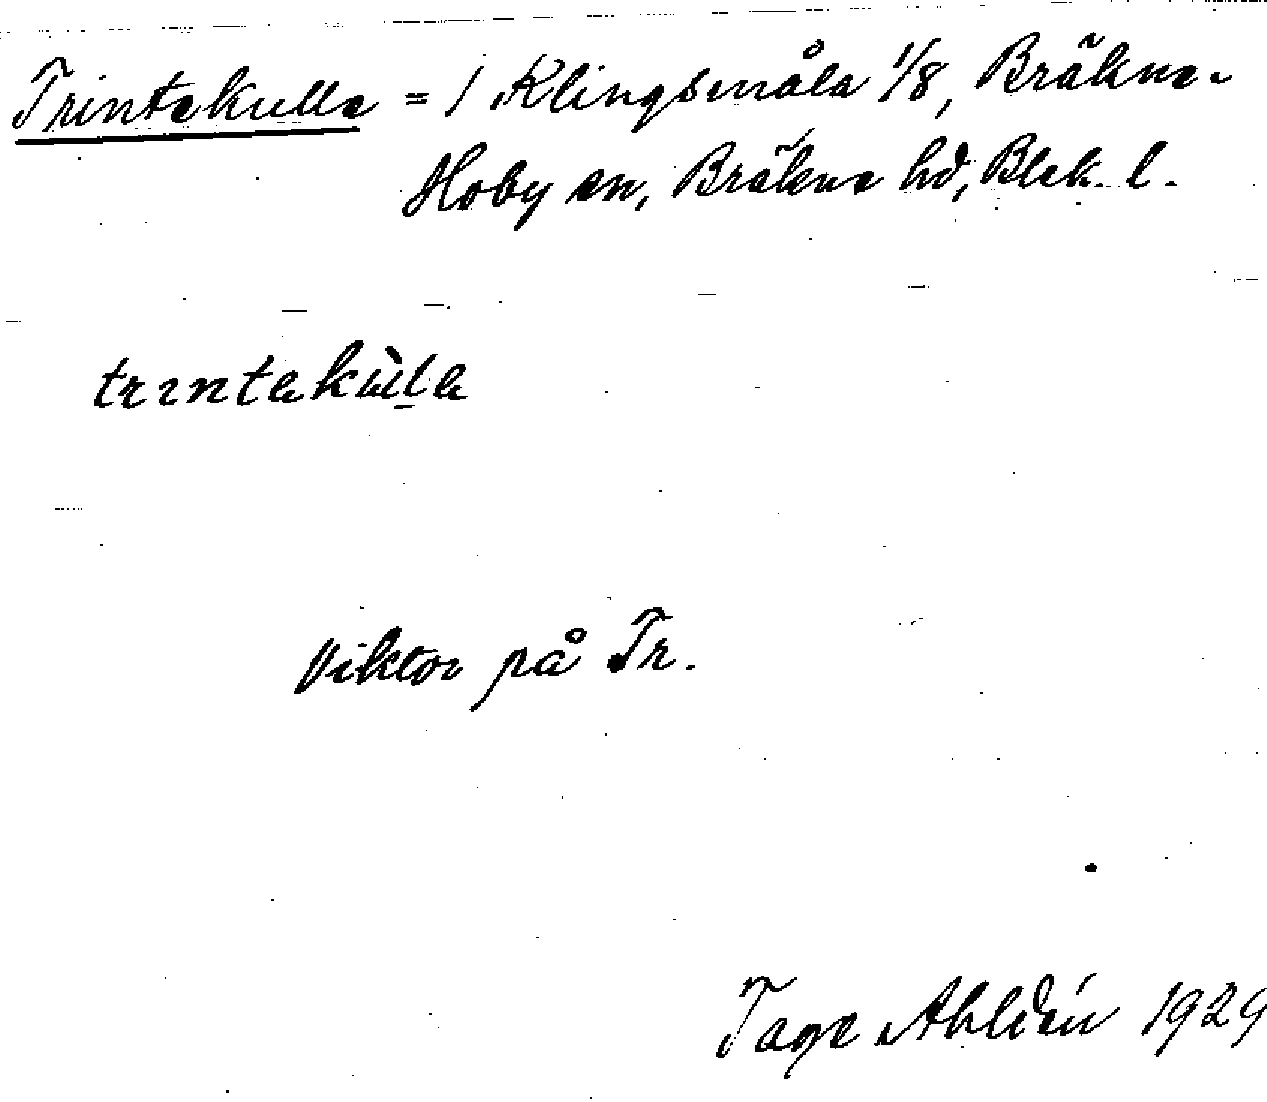 Trintekulle = 1 Klingsmåla 1/8, Bräkne-
Hoby sn, Bräkne hd, Blek. l.
trıntekùl̲e
Viktor på Tr.
Tage Ahldén 1929